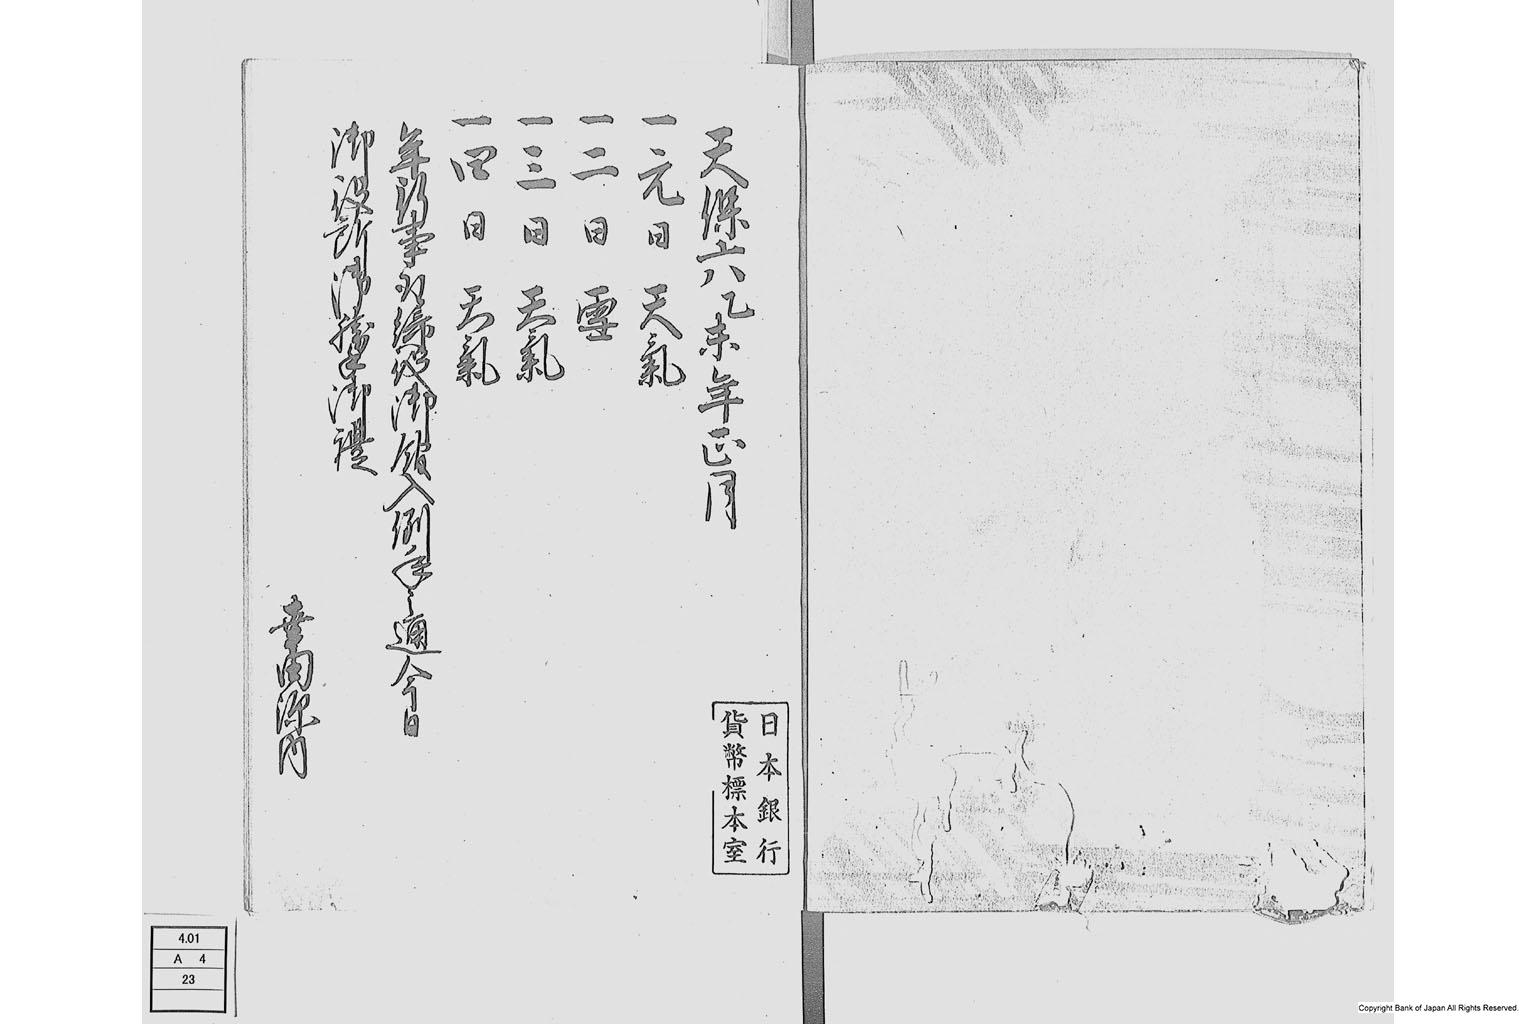 天保六乙未年正月
一元日 天氣
一二日 雪
一三日 天氣
一四日 天氣
年頭事 御館入例年之通今日
御役所御勝手御禮
幸田源内
日本銀行
貨幣標本室
4.01
A 4
23
Copyright Bank of Japan All Rights Reserved.